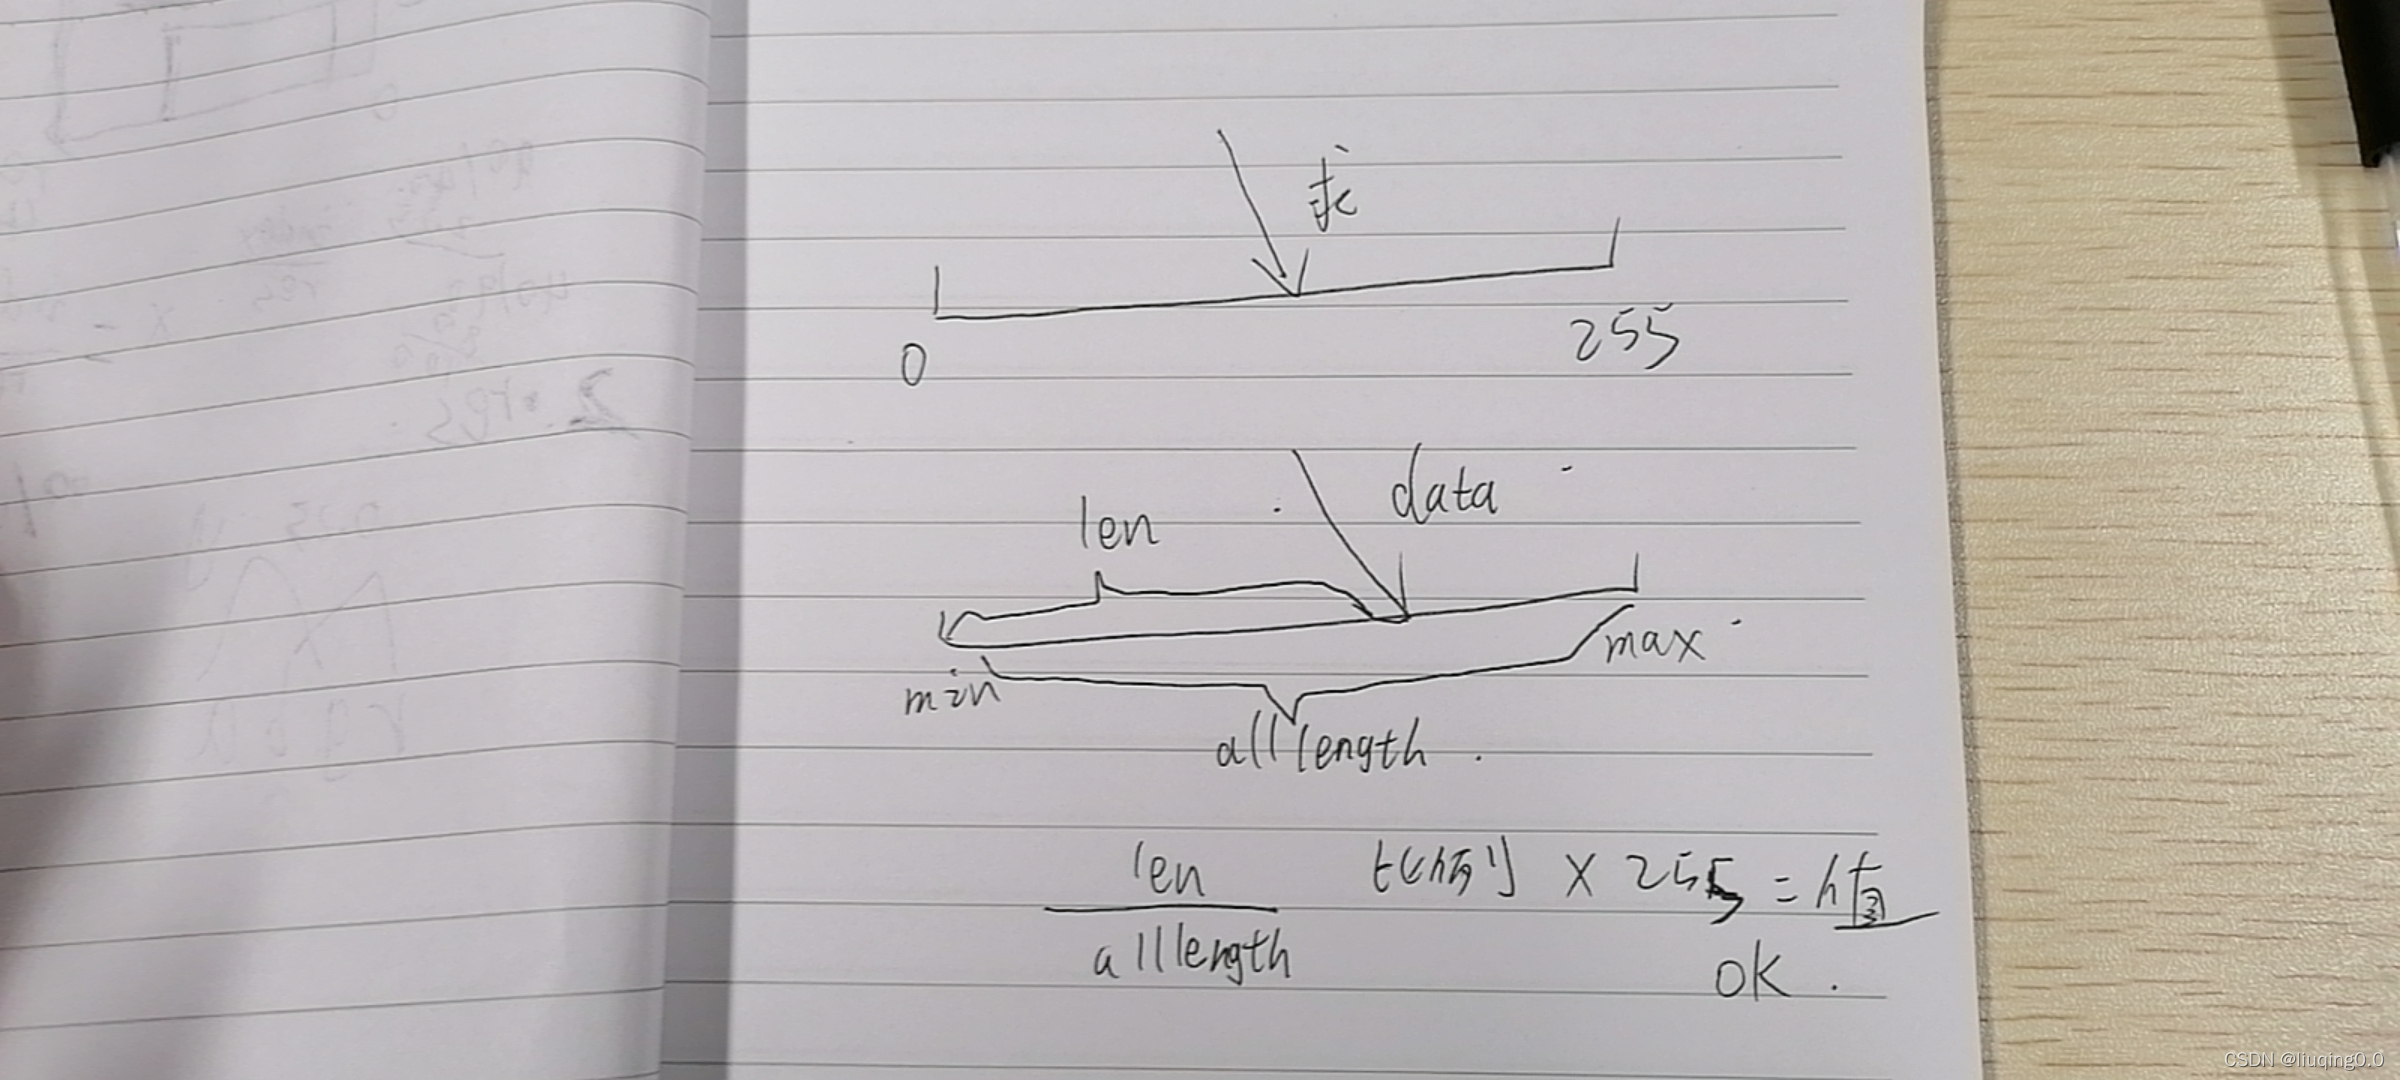 求
0
255
data
len
min
max
all length.
len
all length
比例 × 255 = 值
OK.
CSDN @liuqing0.0